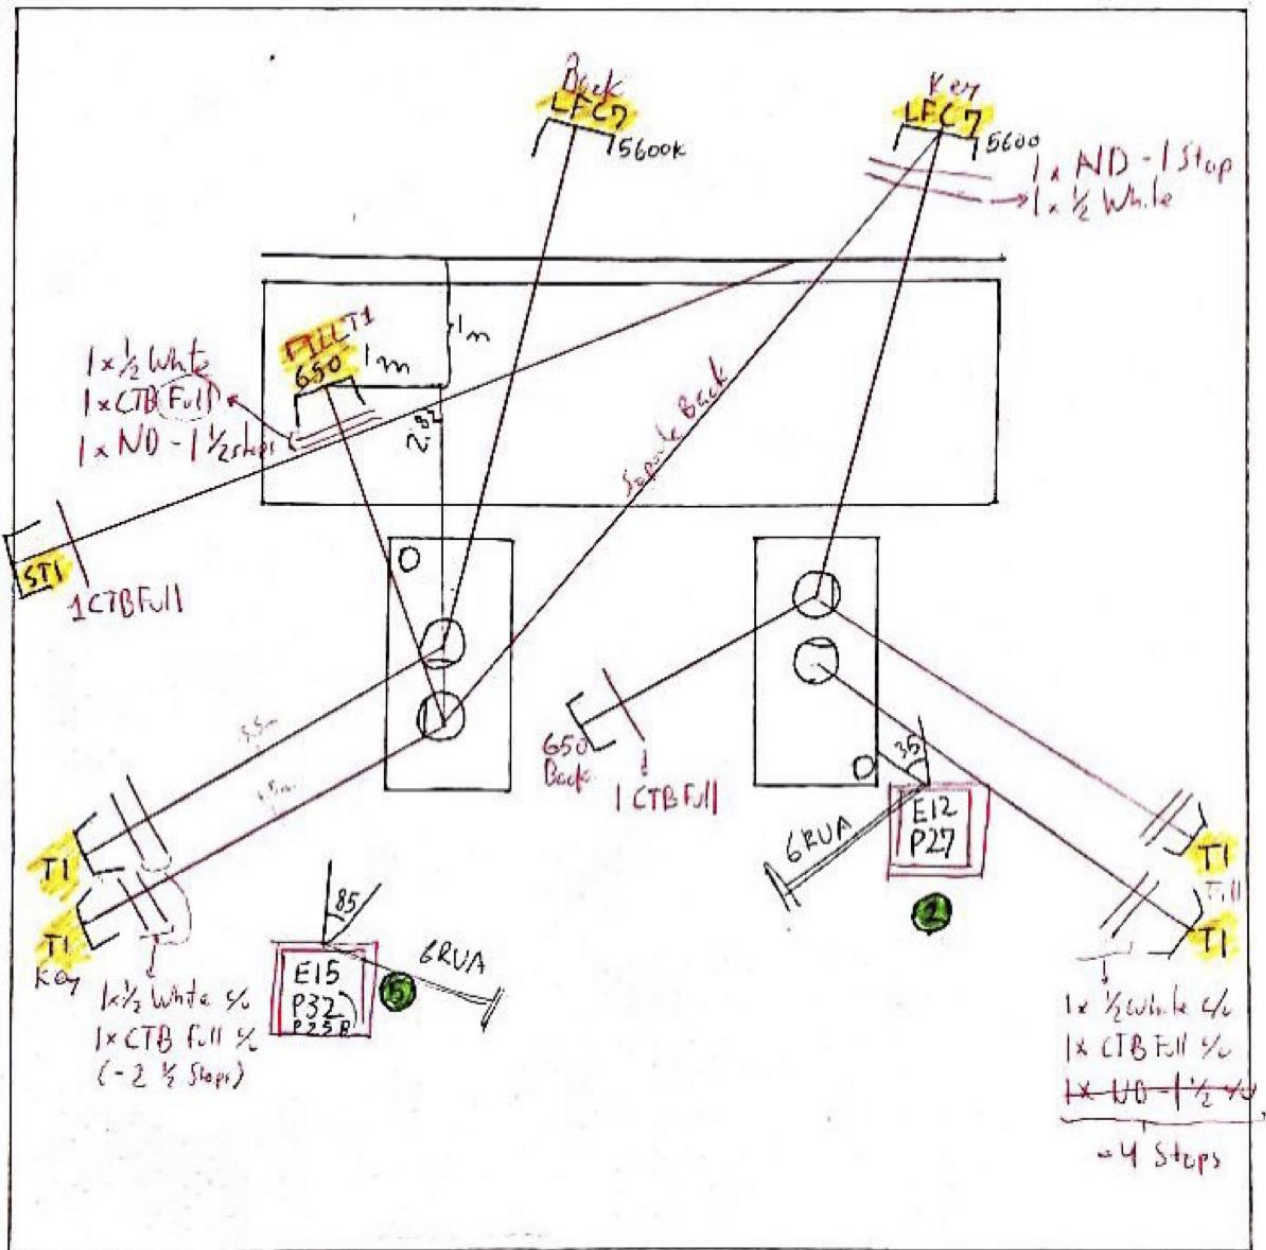 Back
LFC7
5600K
Key
LFC7
5600
1x ND - 1 Stop
1x ½ White
FILL T1
650
1m
1m
2.82
1x ½ White
1xCTB Full
1x ND - 1 ½ stops
Back
ST1
1 CTB Full
5.5m
650
Back
1 CTB Full
35
E12
P27
GRUA
2
T1
Fill
T1
T1
T1
Key
85
E15
P32
P25B
GRUA
5
1x ½ White c/u
1x CTB Full c/u
(- 2 ½ Stops)
1x ½ White c/u
1x CTB Full c/u
1x ND - 1 ½ c/u
-4 Stops